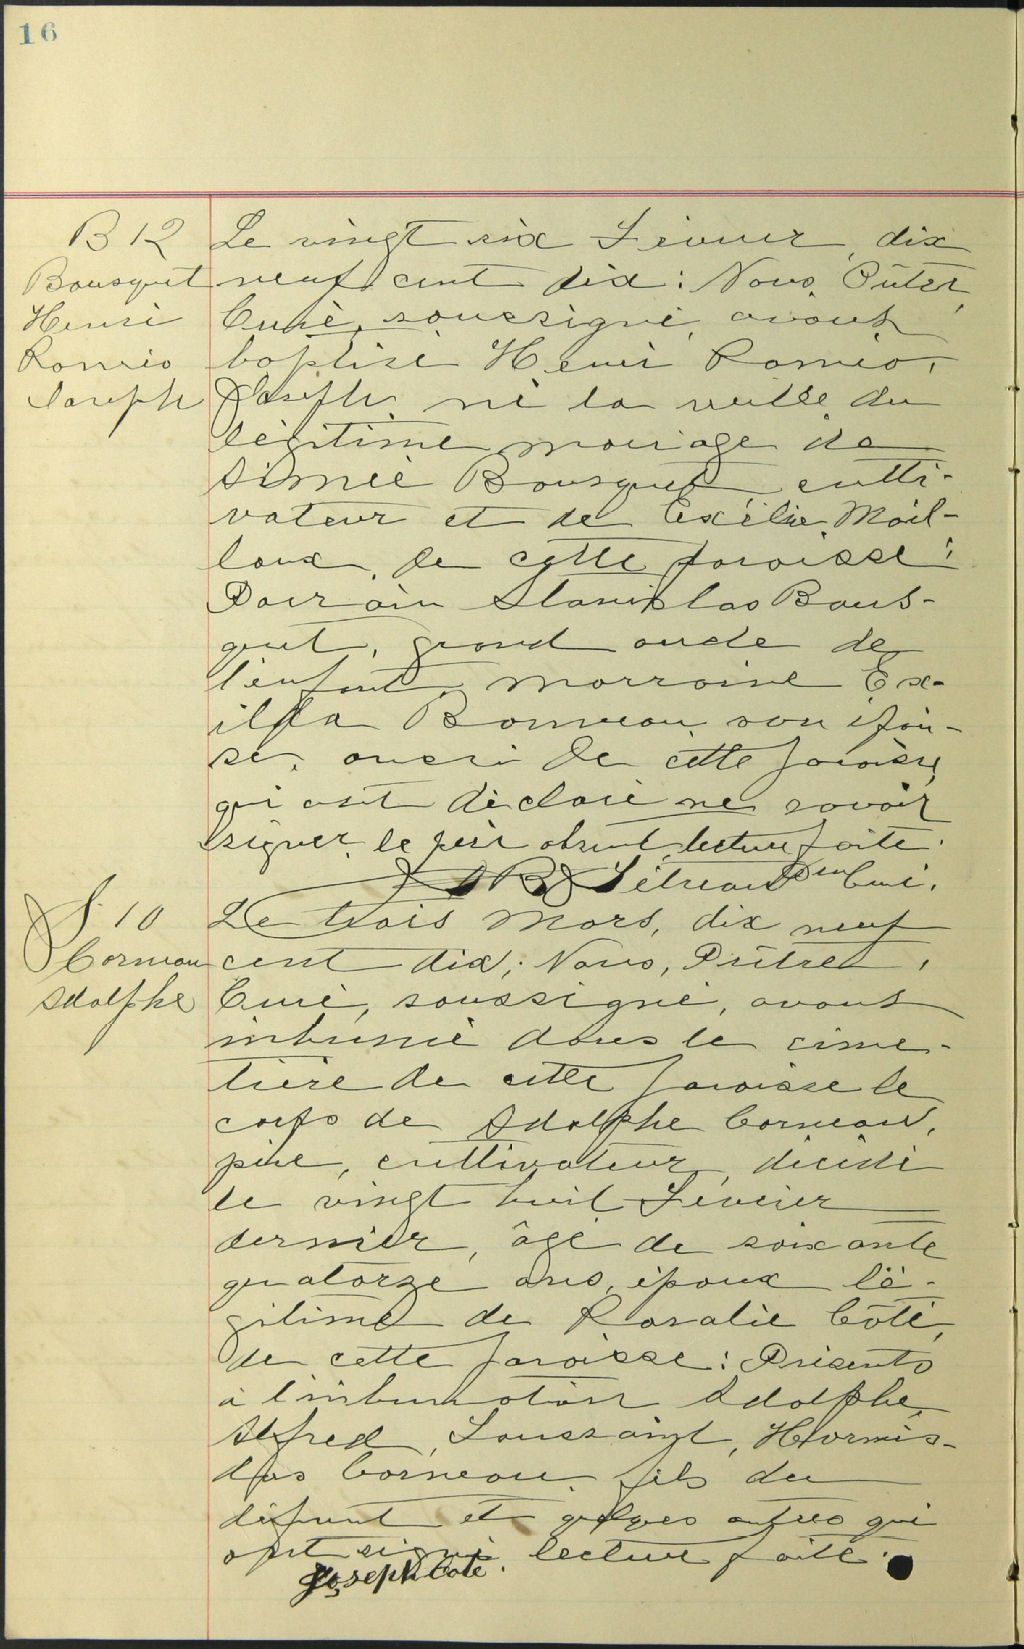 16
B 12
Bousquet
Henri
Roméo
Joseph
Le vingt six Février dix
neuf cent dix: Nous, Prêtre,
Curé, soussigné, avons
baptisé Henri Roméo,
Joseph, né la veille du
légitime mariage de
Aimée Bousquet culti-
vateur et de Exélie Mail-
loux, de cette paroisse:
Parrain Stanislas Bous-
quet, grand oncle de
l'enfant, marraine Ex-
ilda Bonneau son épou-
se, aussi de cette paroisse,
qui ont déclaré ne savoir
signer, le père absent, lecture faite.
Curé.
S 10
Corneau
Adolphe
Le trois Mars, dix neuf
cent dix; Nous, Prêtre,
Curé, soussigné, avons
inhumé dans le cime-
tière de cette paroisse le
corps de Adolphe Corneau,
père, cultivateur, décédé
le vingt huit Février
dernier, âgé de soixante
quatorze ans, époux lé-
gitime de Rosalie Côté,
de cette paroisse: Présents
à l'inhumation Adolphe,
Alfred, Toussaint, Hormis-
das Corneau fils du
défunt et quelques autres qui
ont signé lecture faite.
Joseph Coté.